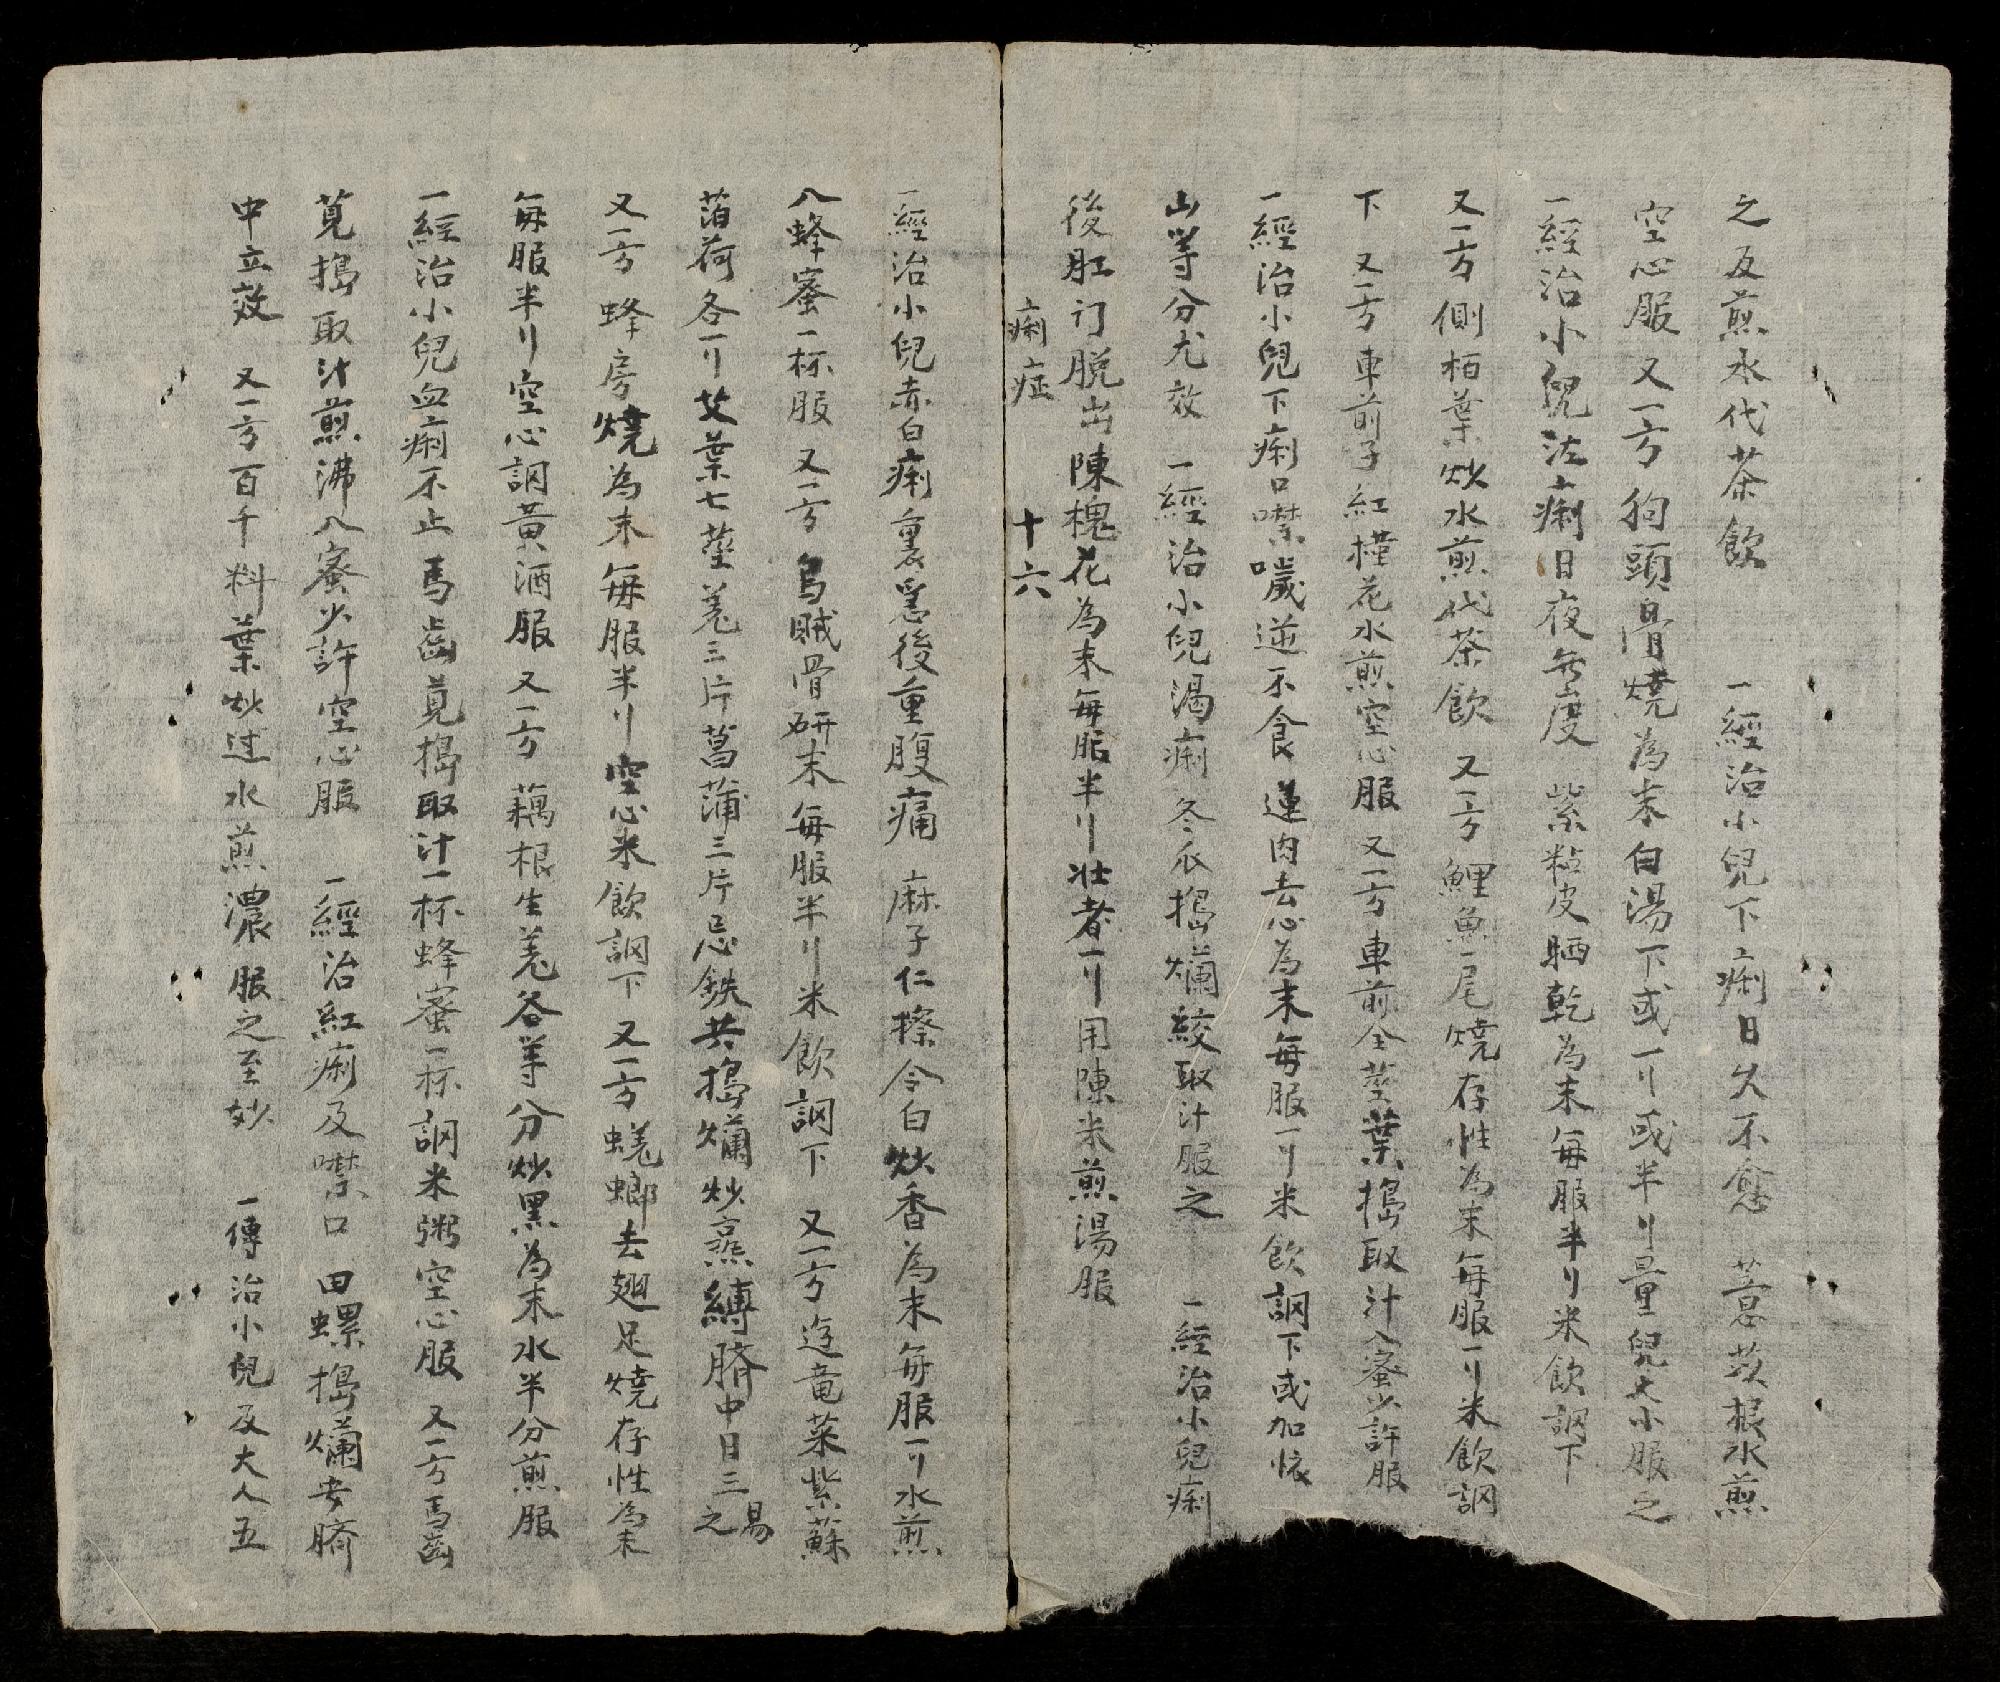 之及煎水代茶飲 一經治小兒下痢日久不愈 薏苡根水煎
空心服 又一方狗頭骨燒為末白湯下或一刂或半刂量兒大小服之
一經治小兒泄痢日夜無度 紫粘皮晒乾為末每服半刂米飲調下
又一方側栢葉炒水煎代茶飲 又一方鯉魚一尾燒存性為末每服一刂米飲調
下 又一方車前子紅槿花水煎空心服 又一方車前全莖葉搗取汁入蜜少許服
一經治小兒下痢口噤噦逆不食 蓮肉去心為末每服一刂米飲調下或加怀
山等分尤效 一經治小兒渴痢 冬瓜搗爛絞取汁服之 一經治小兒痢
後肛门脫出陳槐花為末每服半刂壮者一刂用陳米煎湯服
痢症 十六
一經治小兒赤白痢裏急後重腹痛 麻子仁擦令白炒香為末每服一刂水煎
入蜂蜜一杯服 又一方烏賊骨研末每服半刂米飲調下 又一方迳竜菜紫蘇
萡荷各一刂艾葉七莖羗三片菖蒲三片忌鉄共搗爛炒蒸縛臍中日三易之
又一方蜂房燒為末每服半刂空心米飲調下 又一方蜣螂去翅足燒存性為末
每服半刂空心調黃酒服 又一方藕根生羗各等分炒黑為末水半分煎服
一經治小兒血痢不止馬齒莧搗取汁一杯蜂蜜一杯調米粥空心服 又一方馬齒
莧搗取汁煎沸入蜜少許空心服 一經治紅痢及噤口 田螺搗爛安臍
中立效 又一方百千料葉炒过水煎濃服之至妙 一傳治小兒及大人五